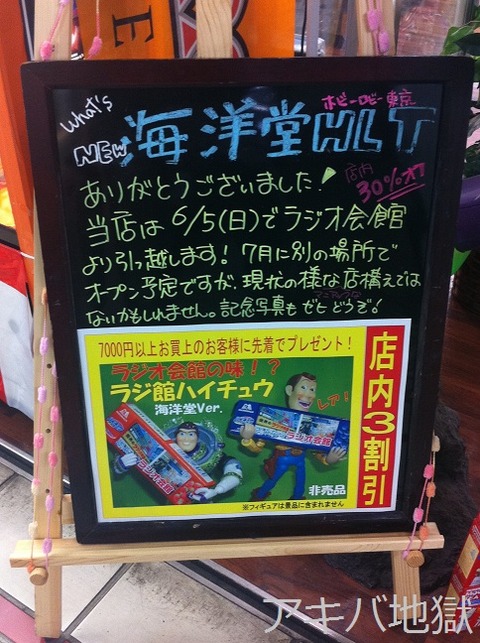 What's
NEW
ホビーロビー東京
海洋堂HLT
ありがとうございました!
店内
30%オフ
当店は6/5(日)でラジオ会館
より引っ越します!7月に別の場所で
オープン予定ですが、現状の様な店構えでは
ないかもしれません。記念写真も ぜひ どうぞ!
7000円以上お買上のお客様に先着でプレゼント!
ラジオ会館の味!?
ラジ館ハイチュウ
海洋堂Ver.
レア!
ラジオ会館
非売品
※フィギュアは景品に含まれません
店内3割引
アキバ地獄